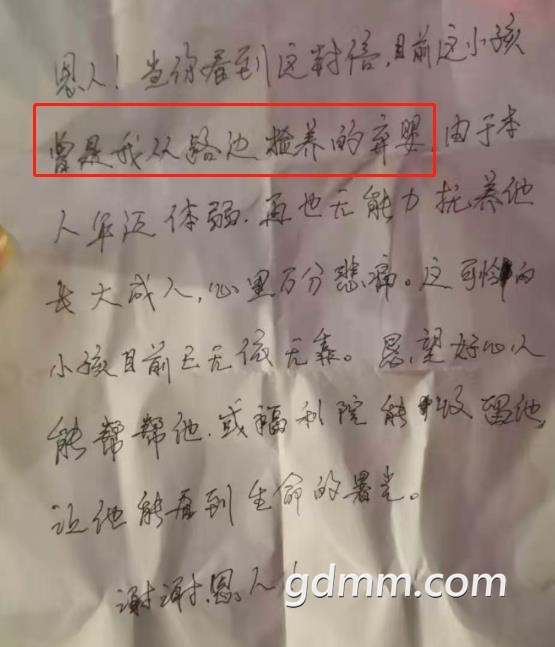 恩人！当你看到这封信，目前这小孩
曾是我从路边捡养的弃婴，由于本
人年迈体弱，再也无能力抚养他
长大成人，心里万分悲痛。这可怜的
小孩目前已无依无靠。恳望好心人
能帮帮他，或福利院能收留他，
让他能看到生命的曙光。
谢谢恩人！
gdmm.com